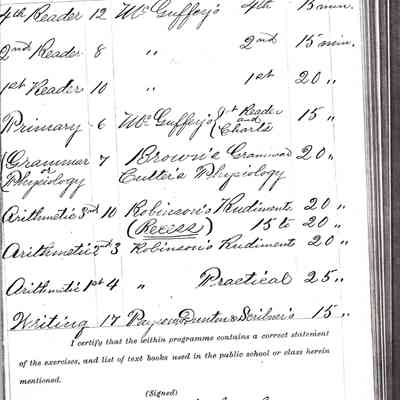 4th Reader 12 McGuffey's 4th 15 min.
2nd Reader 8 " 2nd 15 min.
1st Reader 10 " 1st 20 "
Primary 6 McGuffey's (1st Reader and Charts 15 "
(Grammar 7 Brown's Grammar 20 "
or Physiology Cutter's Physiology
Arithmetic 3rd 10 Robinson's Rudiments 20 "
(Recess) 15 to 20 "
Arithmetic 2nd 3 Robinson's Rudiments 20 "
Arithmetic 1st 4 " Practical 25 "
Writing 17 Payson Dunton & Scribner's 15 "
I certify that the within programme contains a correct statement
of the exercises, and list of text books used in the public school or class herein
mentioned.
(Signed)